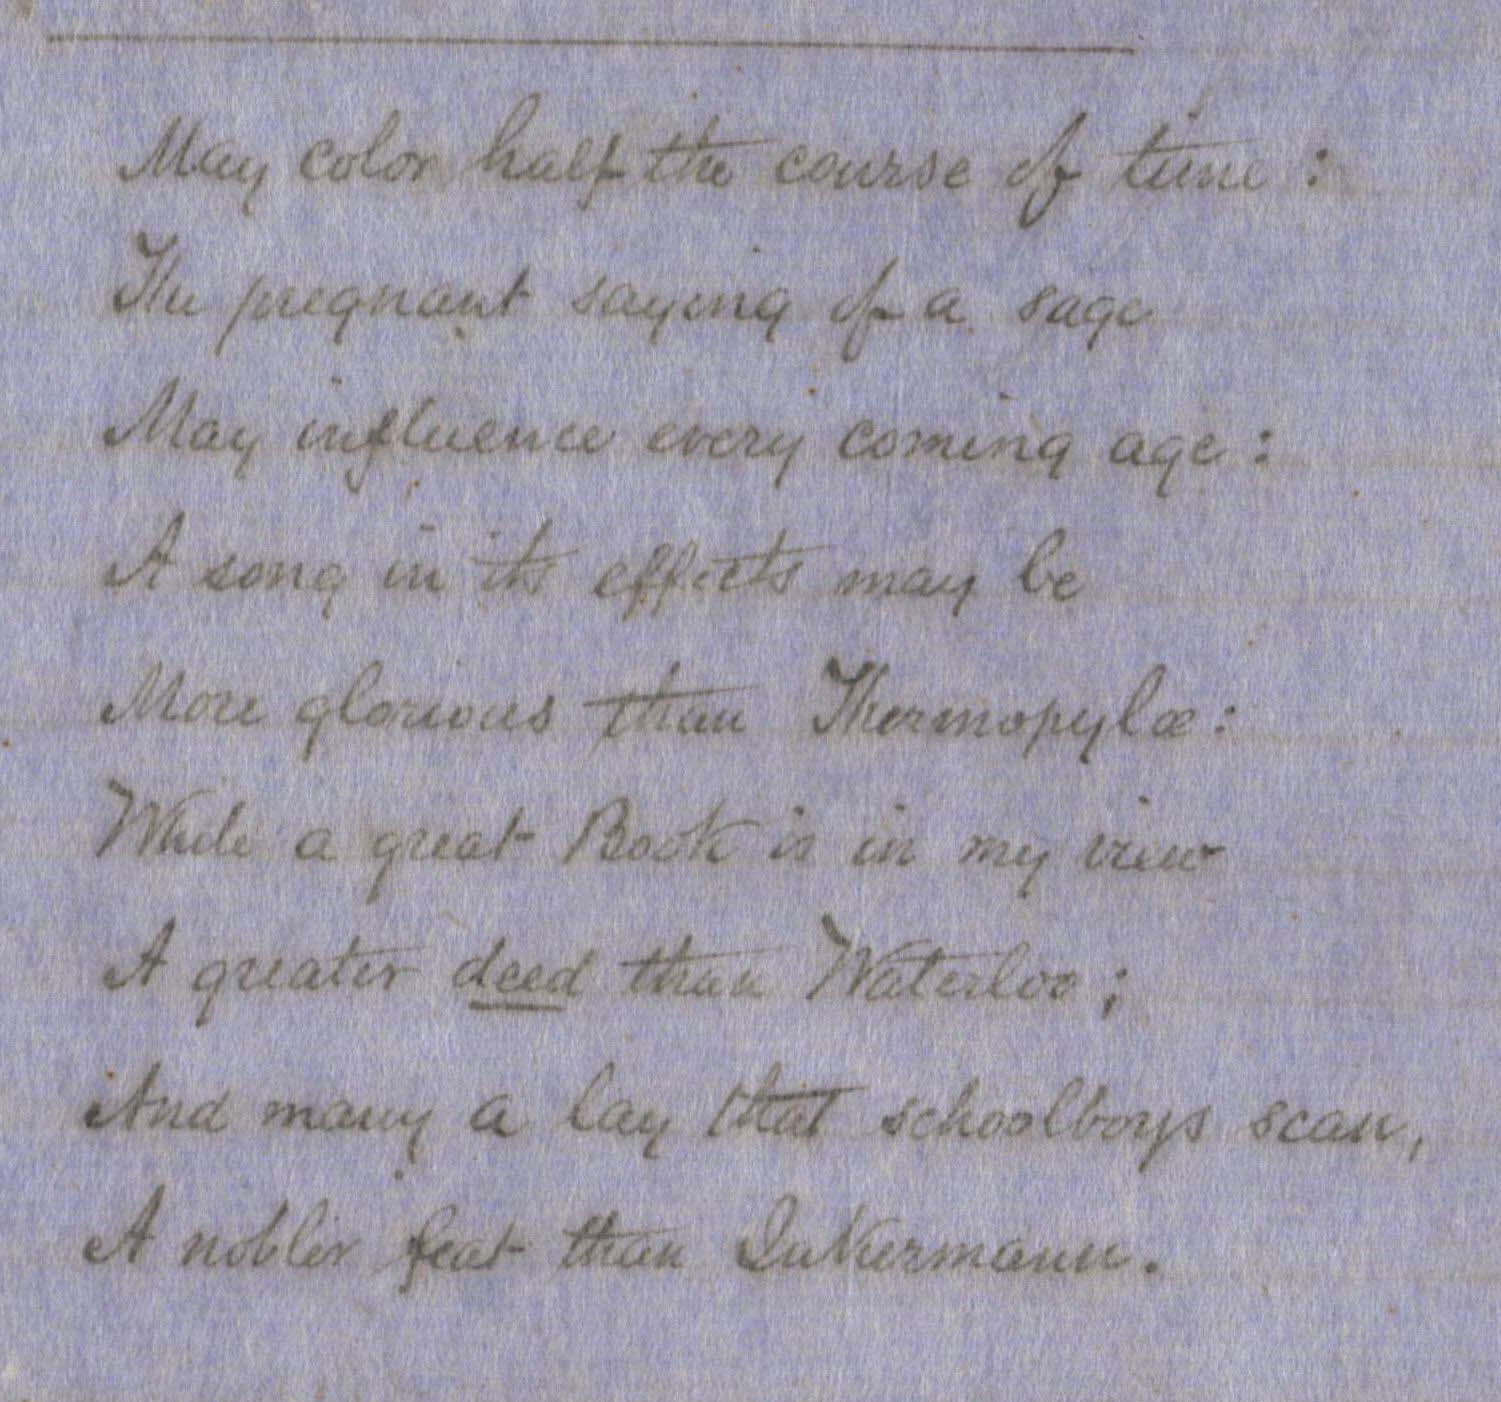 May color half the course of time :
The pregnant saying of a sage
May influence every coming age :
A song in its effects may be
More glorious than Thermopylæ :
While a great Book is in my view
A greater deed than Waterloo ;
And many a lay that schoolboys scan,
A nobler feat than Inkermann.